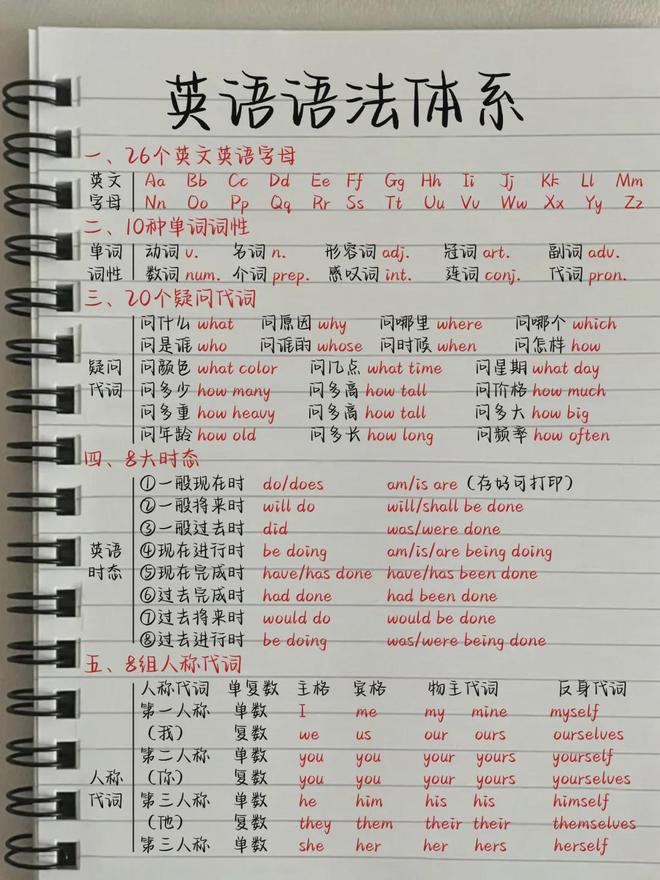 英语语法体系
一、26个英文英语字母
英文 Aa Bb Cc Dd Ee Ff Gg Hh Ii Jj Kk Ll Mm
字母 Nn Oo Pp Qq Rr Ss Tt Uu Vv Ww Xx Yy Zz
二、10种单词词性
单词 动词 v. 名词 n. 形容词 adj. 冠词 art. 副词 adv.
词性 数词 num. 介词 prep. 感叹词 int. 连词 conj. 代词 pron.
三、20个疑问代词
问什么 what 问原因 why 问哪里 where 问哪个 which
问是谁 who 问谁的 whose 问时候 when 问怎样 how
疑问 问颜色 what color 问几点 what time 问星期 what day
代词 问多少 how many 问多高 how tall 问价格 how much
问多重 how heavy 问多高 how tall 问多大 how big
问年龄 how old 问多长 how long 问频率 how often
四、8大时态
①一般现在时 do/does am/is are (存好可打印)
②一般将来时 will do will/shall be done
③一般过去时 did was/were done
英语 ④现在进行时 be doing am/is/are being doing
时态 ⑤现在完成时 have/has done have/has been done
⑥过去完成时 had done had been done
⑦过去将来时 would do would be done
⑧过去进行时 be doing was/were being done
五、8组人称代词
人称代词 单复数 主格 宾格 物主代词 反身代词
第一人称 单数 I me my mine myself
(我) 复数 we us our ours ourselves
第二人称 单数 you you your yours yourself
人称 (你) 复数 you you your yours yourselves
代词 第三人称 单数 he him his his himself
(他) 复数 they them their their themselves
第三人称 单数 she her her hers herself